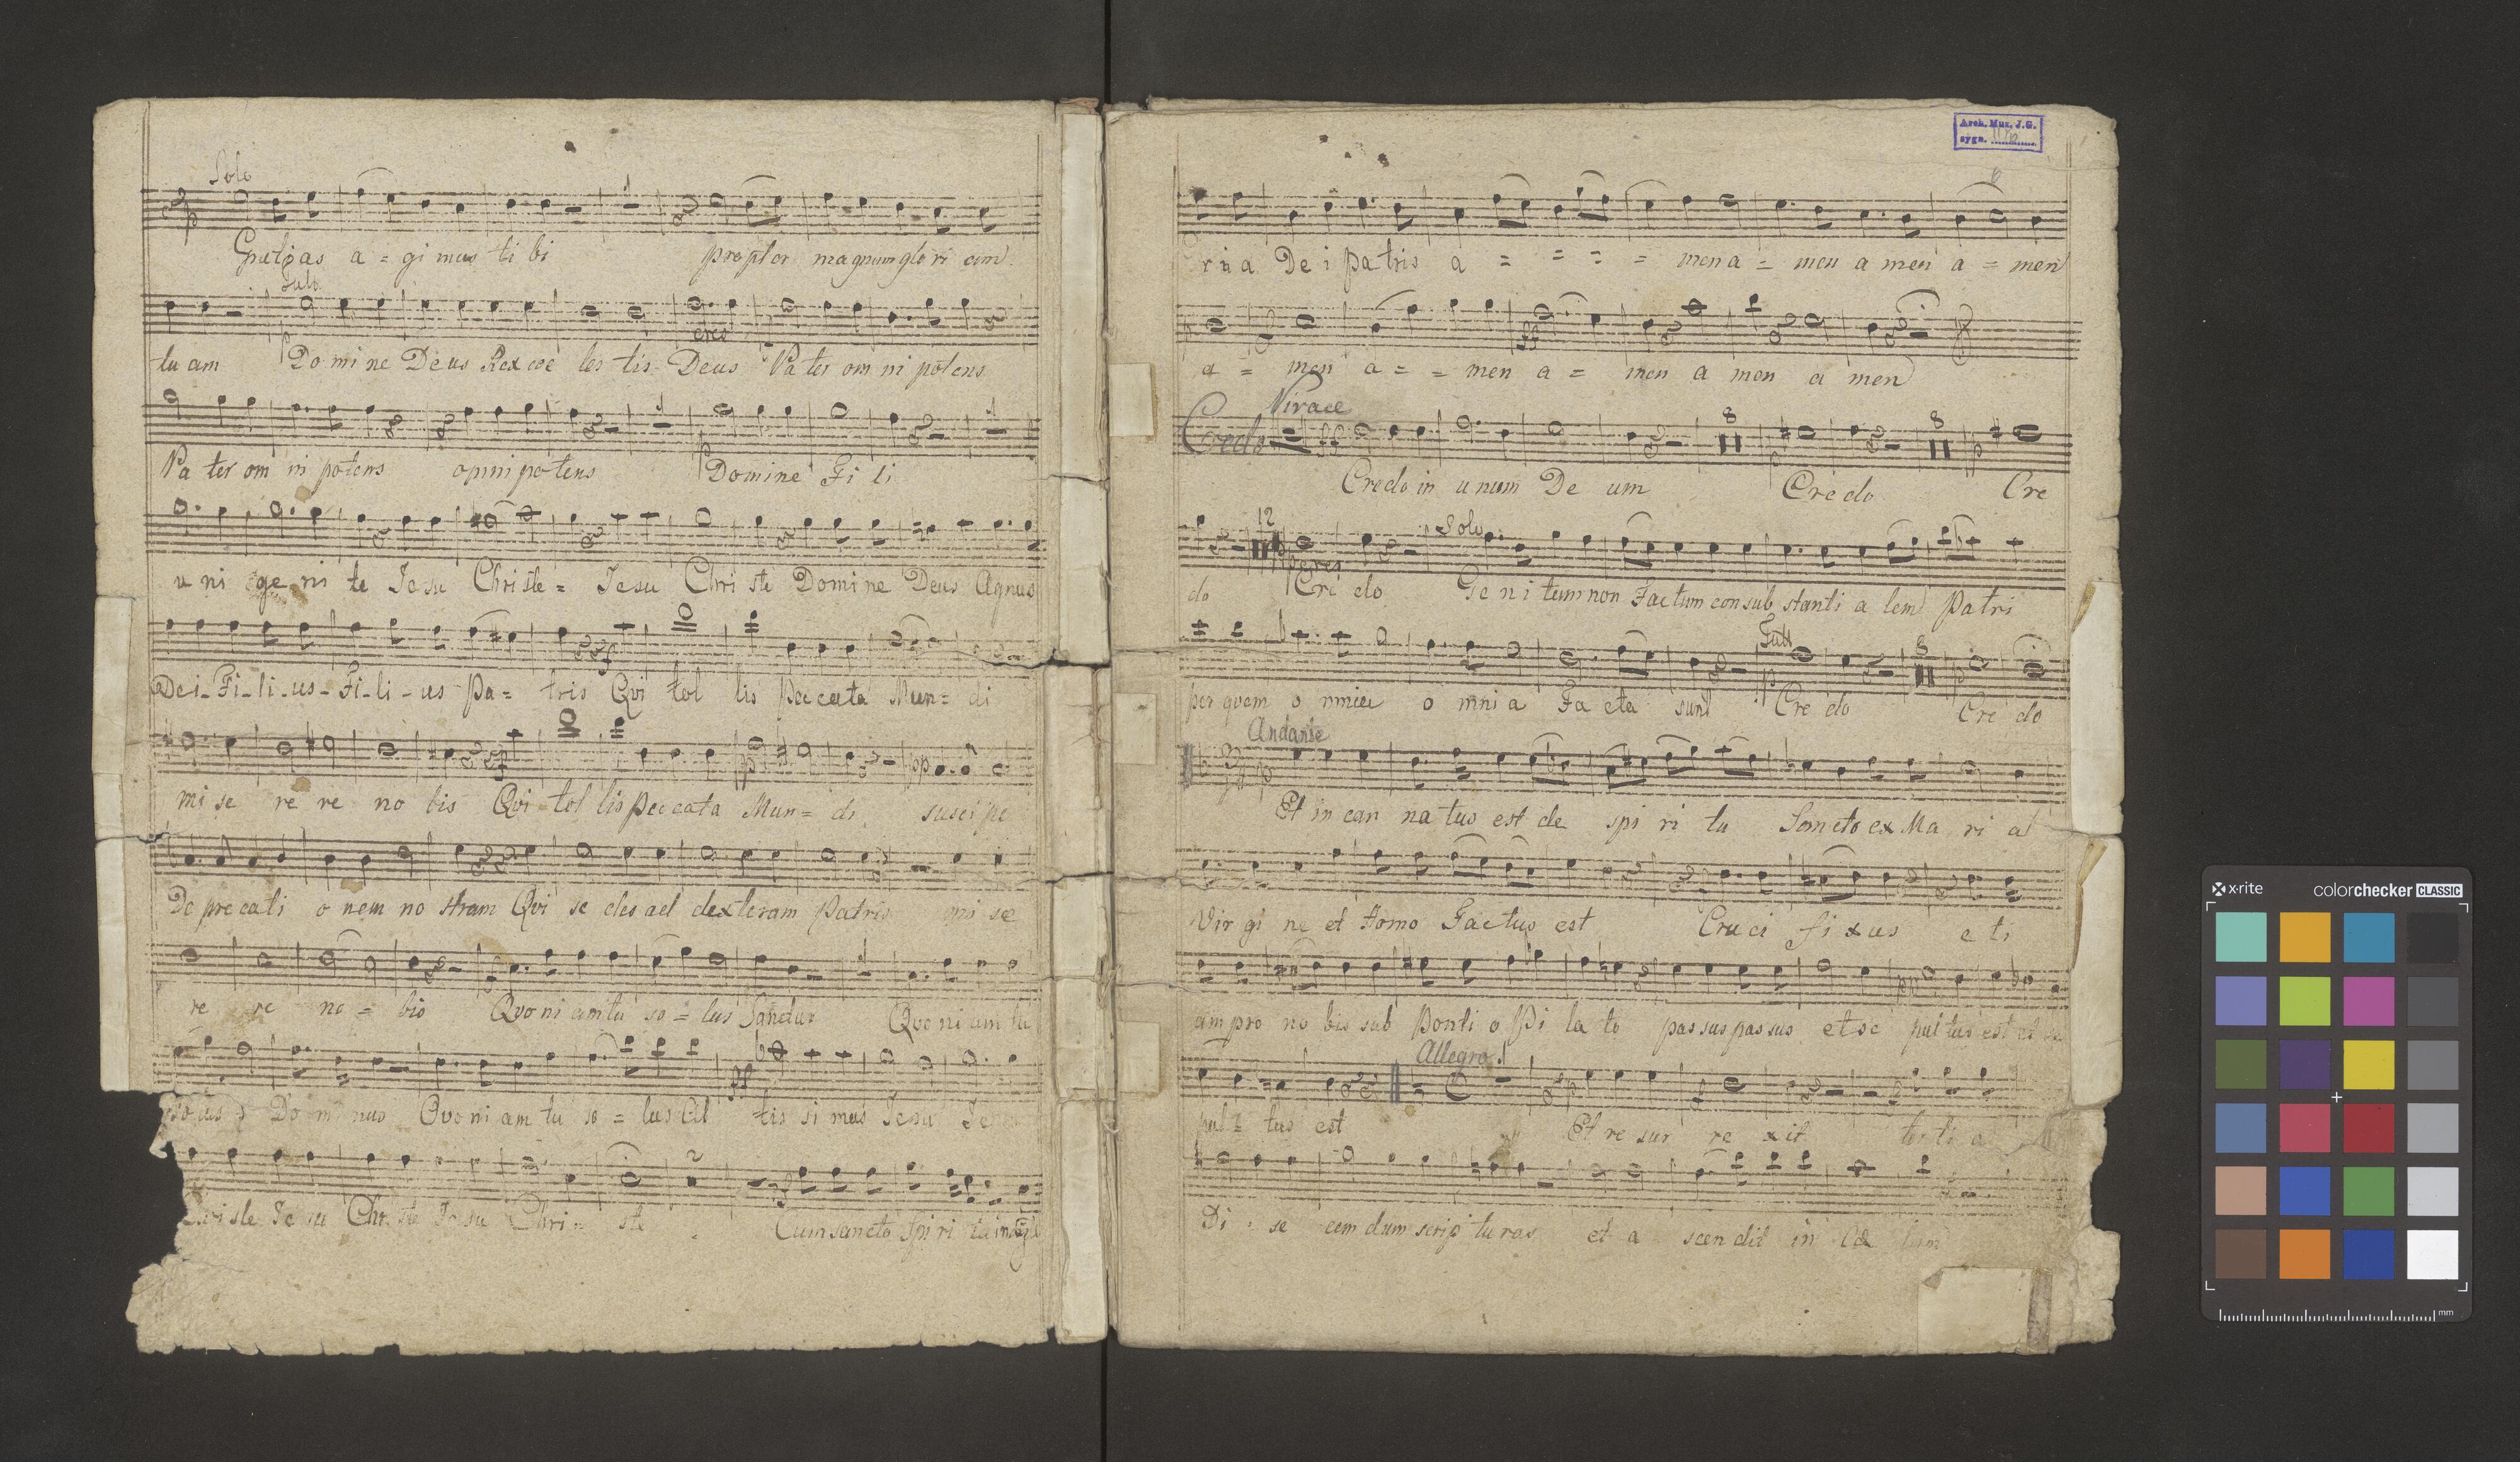 Solo
Gratias a = gi mus ti bi propter magnam glo ri am
Tutti
tu am Do mi ne Deus Rex coe les tis Deus Pa ter om ni potens
cres
Pa ter om ni potens omni po tens Domine Fi li
u ni ge ni te Je su Christe = Jesu Chri ste Domine Deus Agnus
De i - Fi - li - us - Fi - li - us Pa = tris Qui tol lis peccata Mun = di
mi se re re no bis Qui tol lis peccata Mun = di suscipe
De pre cati o nem no stram Qui se des ad dexteram Patris mi se
re re no = bis Quo ni am tu so = lus Sanctus Quo ni am tu
so lus Do mi nus Quo ni am tu so = lus al tis si mus Jesu Je
Christe Je su Chri ste Je su Chri = ste Cum sancto Spi ri tu in gl
Arch. Muz. J.G.
sygn.
ria De i Patris a = = = = men a = men a men a = men
a = men a = = men a = men a men a men
Vivace
Credo
8 8
Credo in unum De um Credo Cre
12 Solo
do Cre do Ge ni tum non Factum con sub stanti a lem Patri
Tutti
8
per quem o mnia o mnia Fa cta sunt Cre do Cre do
Andante
Et in car na tus est de spi ri tu Sancto ex Ma ri a
Vir gi ne et Homo Factus est Cru ci fi xus e ti
am pro no bis sub Ponti o Pi la to passus passus et se pul tus est et se
Allegro
pul = tus est Et re sur re xit ter ti a
Di = se cun dum scrip tu ras et a scen dit in Coe lum
x-rite
colorchecker CLASSIC
mm